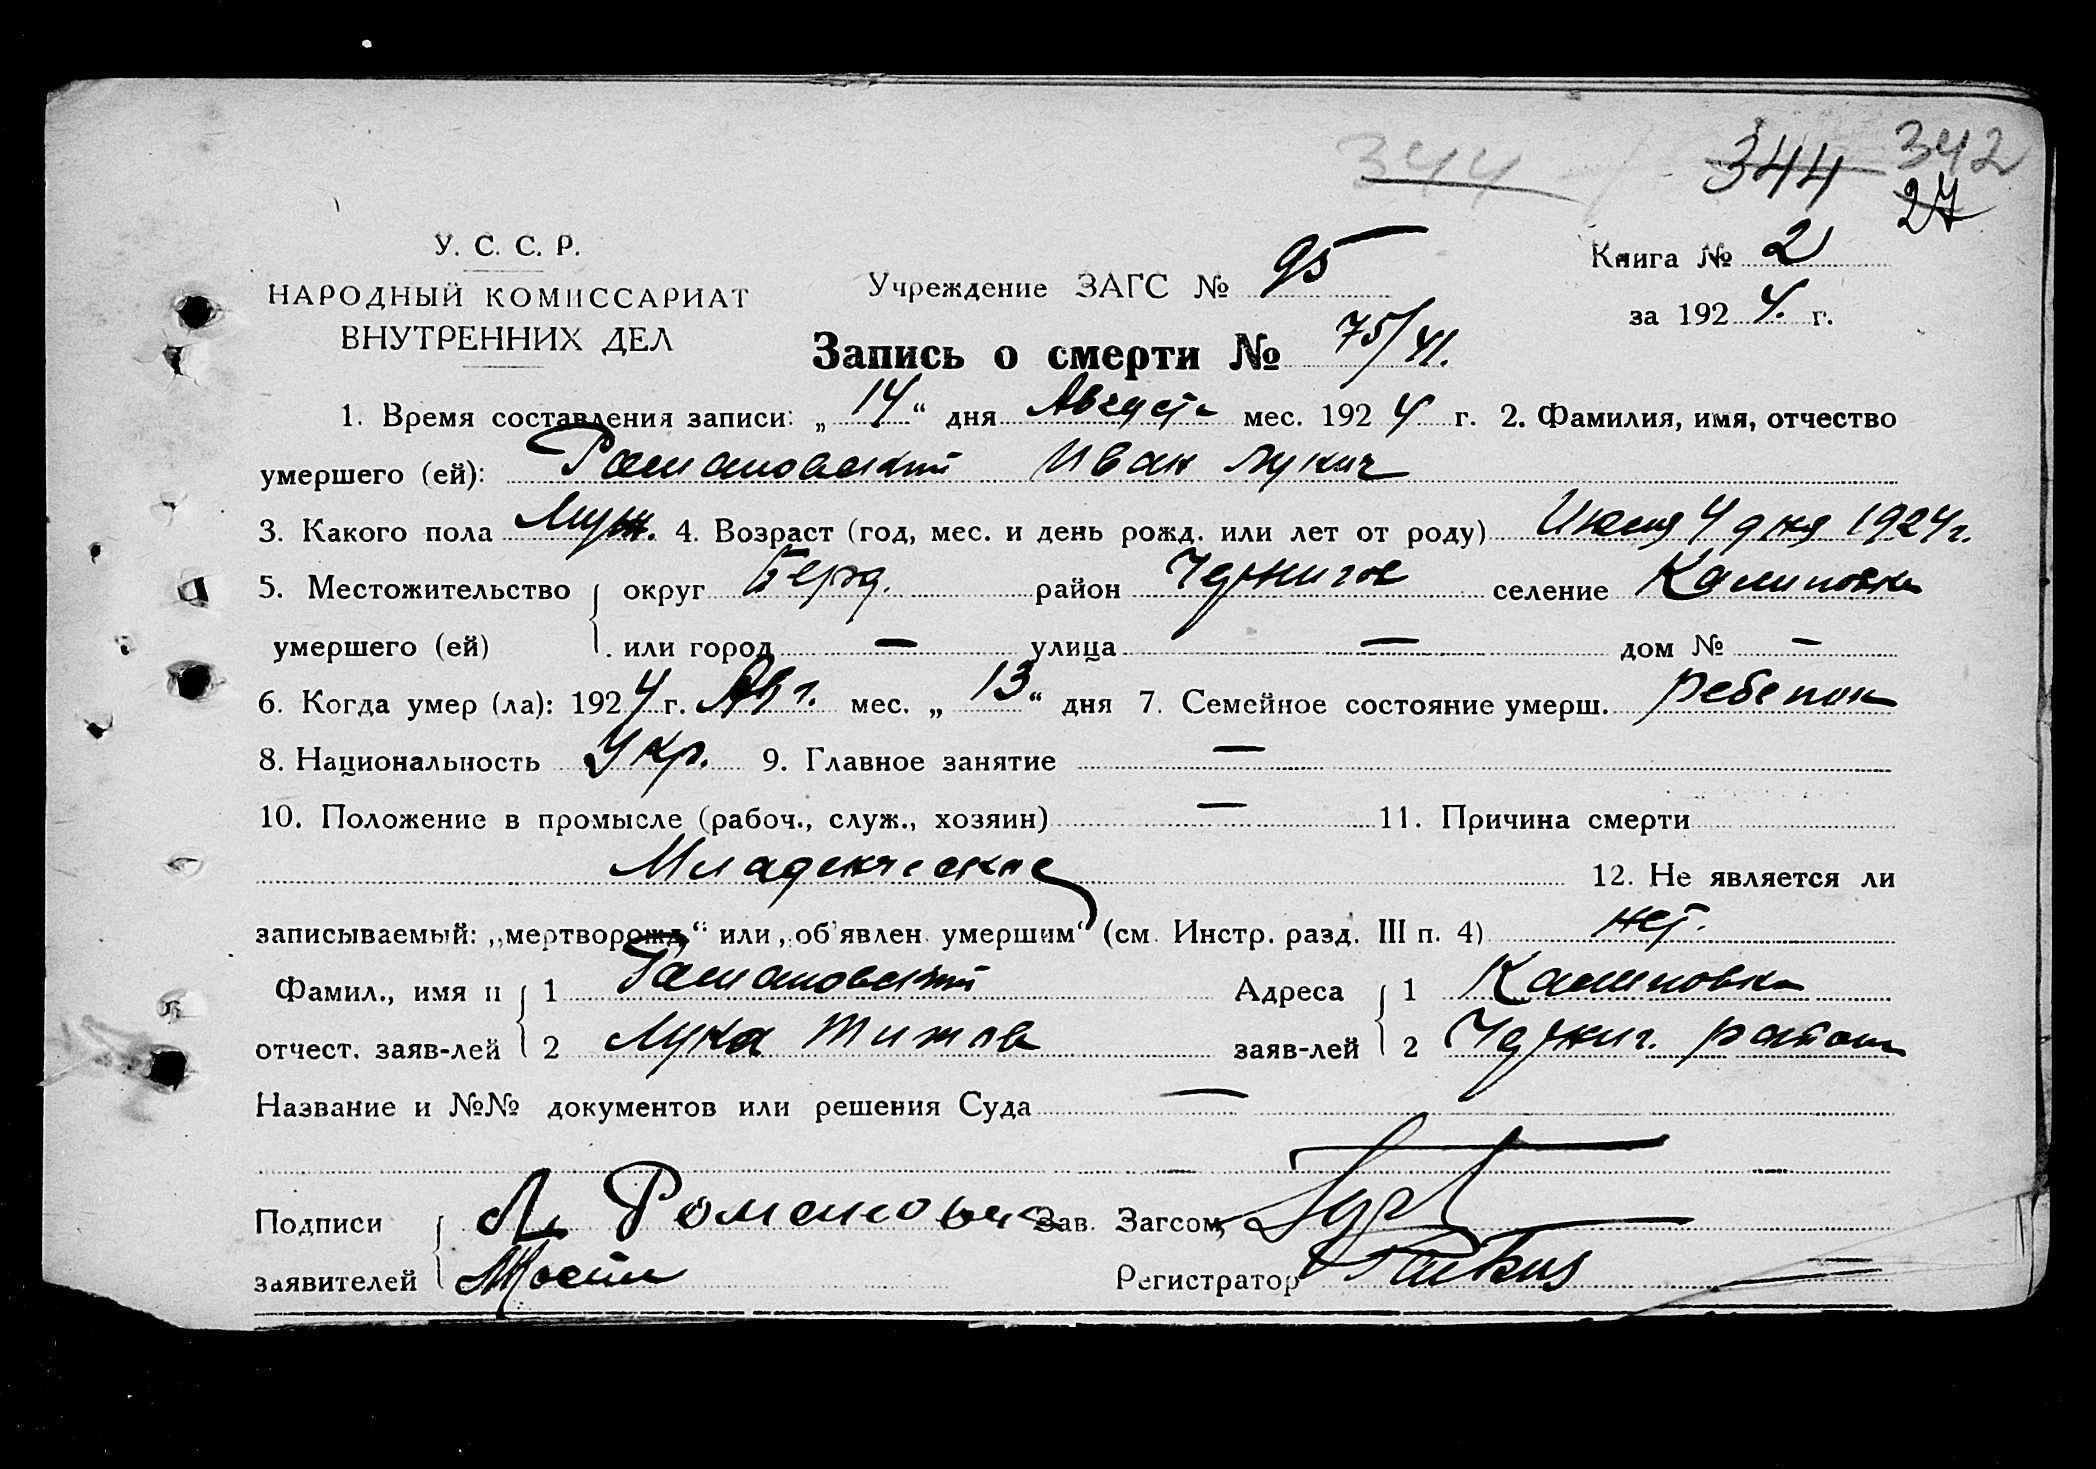 344 344 342
27
У. С. С. Р.
НАРОДНЫЙ КОМИССАРИАТ
ВНУТРЕННИХ ДЕЛ
Учреждение ЗАГС № 95
Книга № 2
за 1924 г.
Запись о смерти № 75/41.
1. Время составления записи: „14“ дня Августа мес. 1924 г. 2. Фамилия, имя, отчество
умершего (ей): Рамановский Иван Лукич
3. Какого пола Муж. 4. Возраст (год, мес. и день рожд. или лет от роду) Июля 4 дня 1924 г.
5. Местожительство округ Берд. район Чернигов селение Калиновка
умершего (ей) или город — улица — дом № —
6. Когда умер (ла): 1924 г. Авг. мес. „13“ дня 7. Семейное состояние умерш. ребенок
8. Национальность Укр. 9. Главное занятие —
10. Положение в промысле (рабоч., служ., хозяин) — 11. Причина смерти
Младенческие 12. Не является ли
записываемый: „мертворожд.“ или „об'явлен умершим“ (см. Инстр. разд. III п. 4) нет.
Фамил., имя и 1 Рамановский Адреса 1 Калиновка
отчест. заяв-лей 2 Лука Титов заяв-лей 2 Черниг. район
Название и №№ документов или решения Суда —
Подписи Л. Романовск Зав. Загсом
заявителей Регистратор